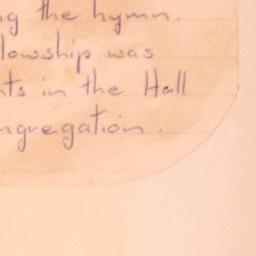 ng the hymn.
llowship was
nts in the Hall
ngregation.